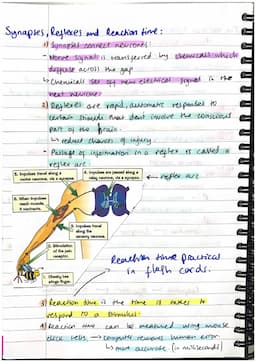 Synapses, Reflexes and Reaction time:
1) Synapses connect neurones
- Nerve signal is transferred by chemicals which
diffuse across the gap
↳ Chemicals set off new electrical signal in the
next neurone.
2) Reflexes are rapid, automatic responses to
certain stimuli that don't involve the conscious
part of the brain.
↳ reduce chances of injury.
- Passage of information in a reflex is called a
reflex arc.
5. Impulses travel along a
motor neurone, via a synapse.
4. Impulses are passed along a
relay neurone, via a synapse.
← reflex arc
6. When impulses
reach muscle,
it contracts.
3. Impulses travel
along the
sensory neurone.
2. Stimulation of
the pain
receptor.
1. Cheeky bee
stings finger.
Reaction time practical
in flash cards.
3) Reaction time is the time it takes to
respond to a stimulus.
4) Reaction time can be measured using mouse
click tests → computer removes human error
↳ more accurate (in milliseconds)